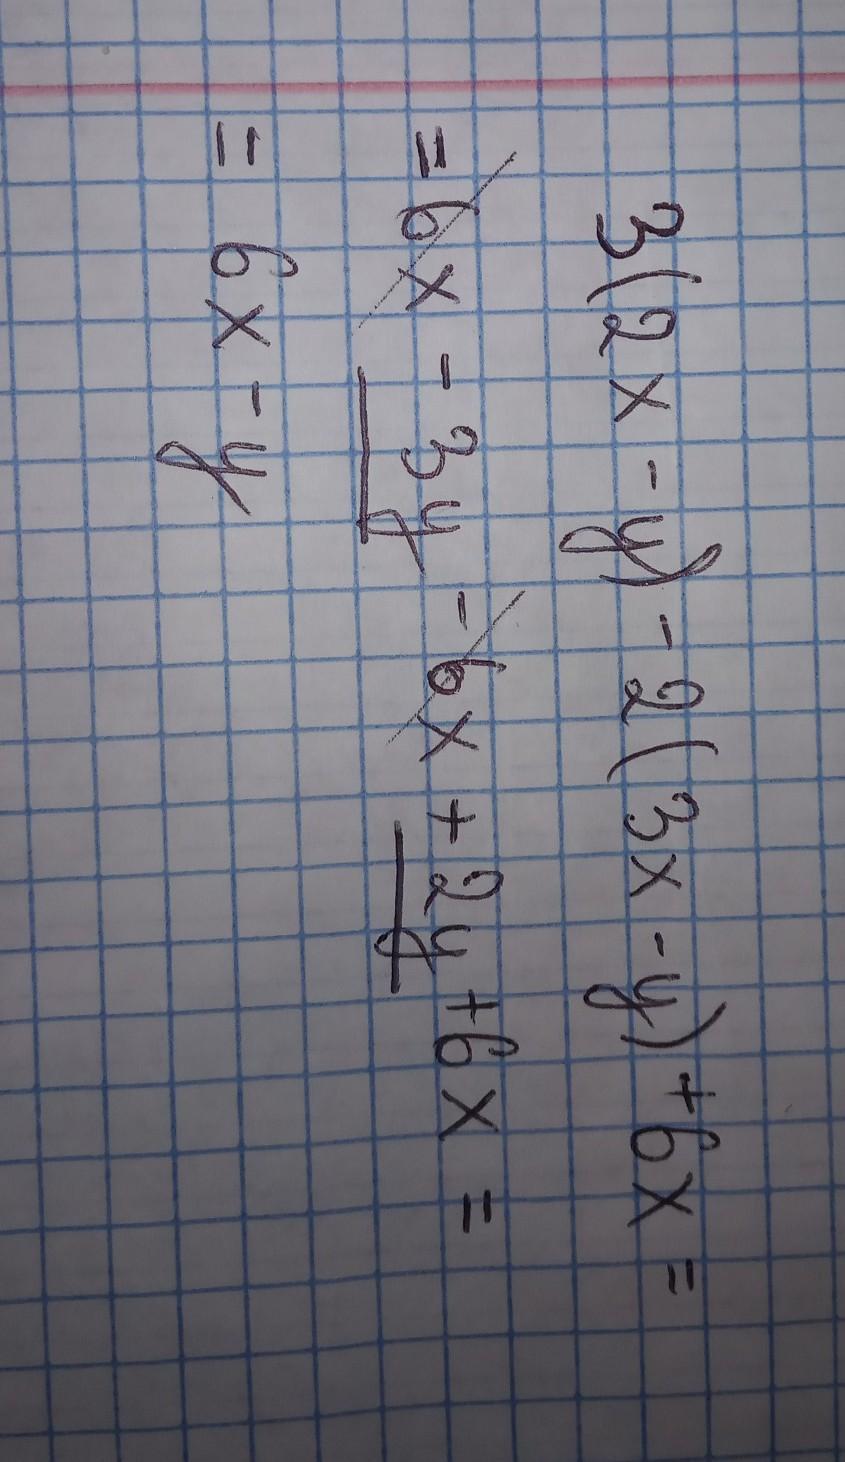 3(2x - y) - 2(3x - y) + 6x =
= 6x - 3y - 6x + 2y + 6x =
= 6x - y